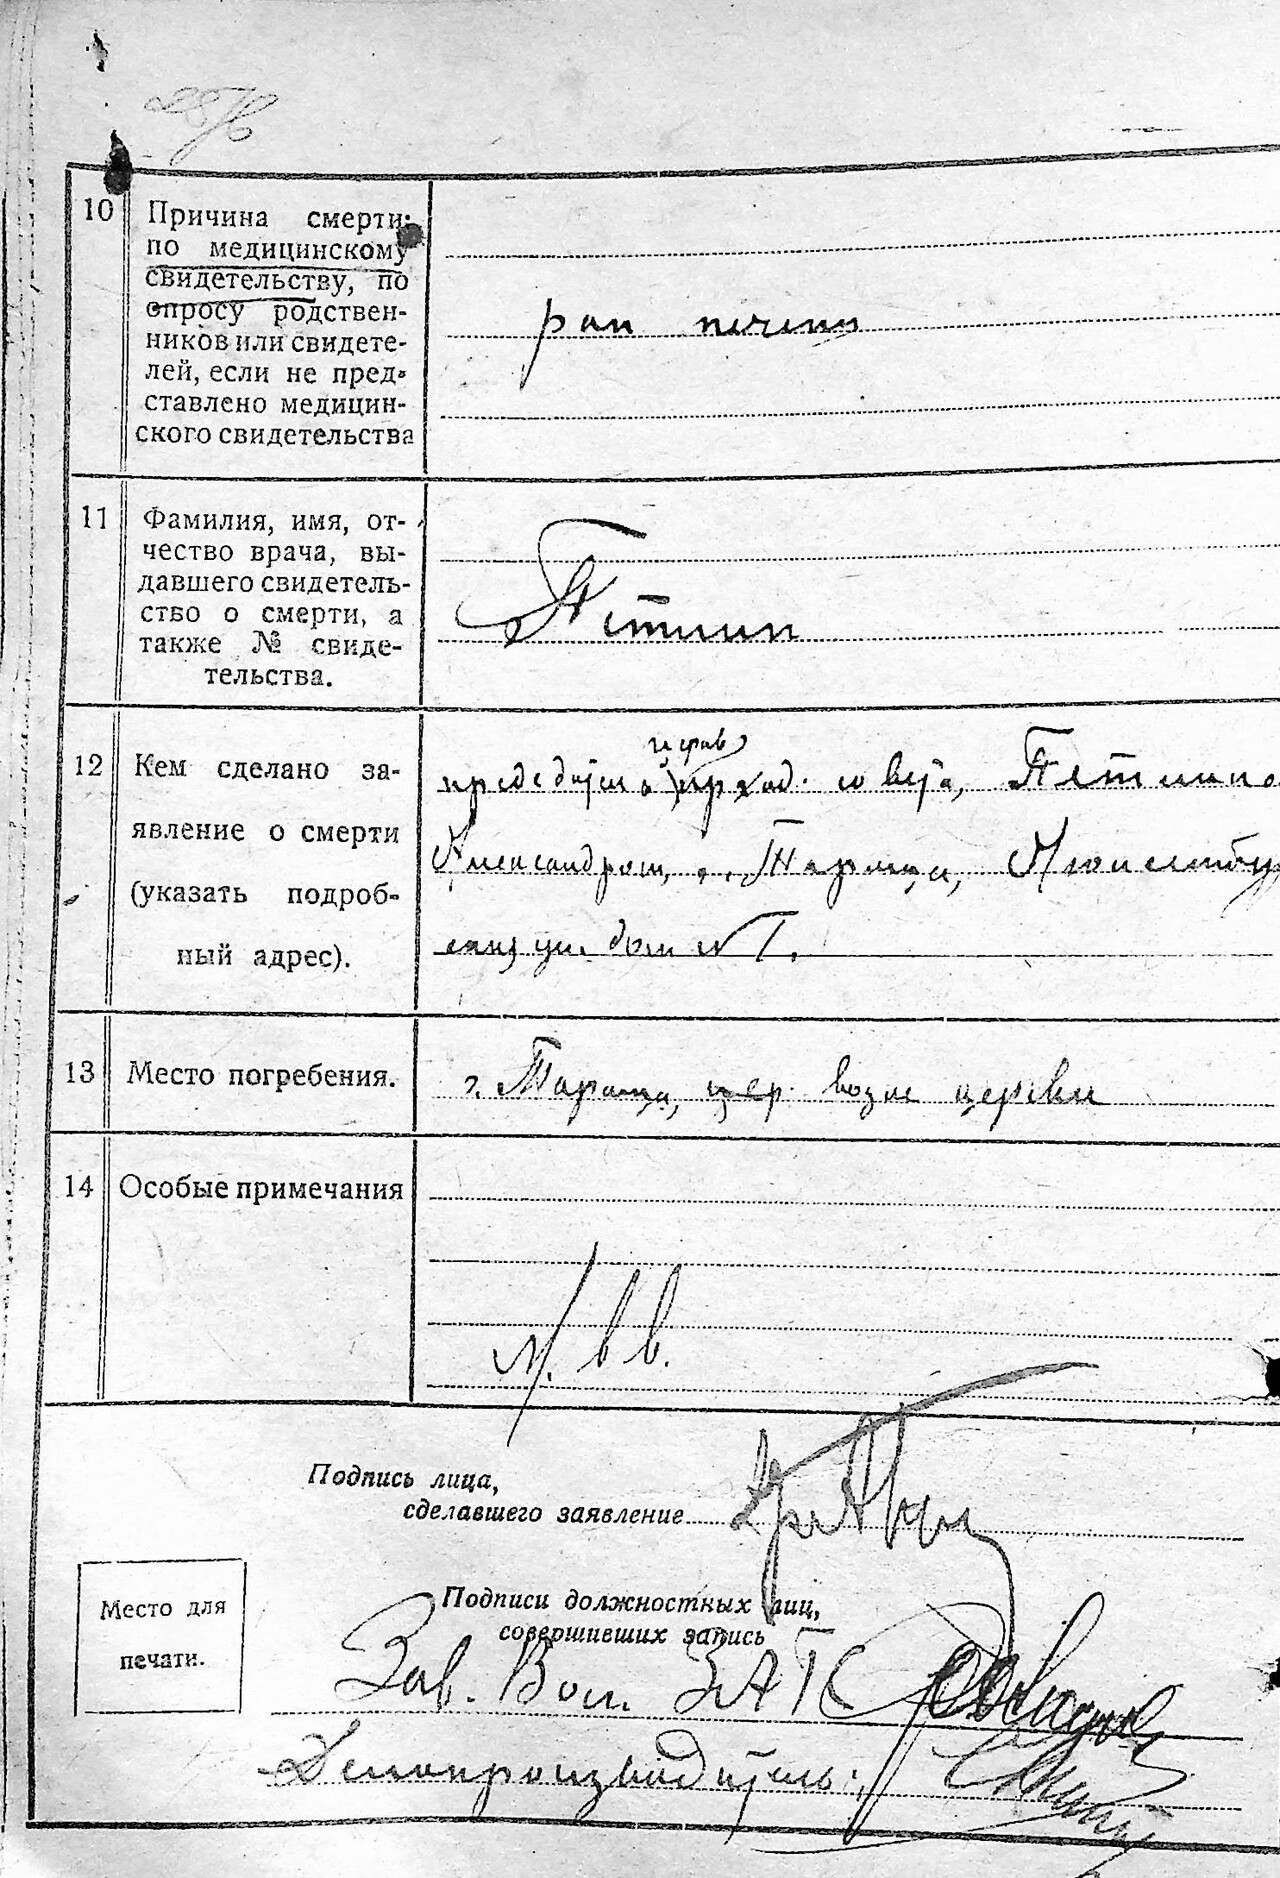 10
Причина смерти:
по медицинскому
свидетельству, по
опросу родствен-
ников или свидете-
лей, если не пред-
ставлено медицин-
ского свидетельства
рак печени
11
Фамилия, имя, от-
чество врача, вы-
давшего свидетель-
ство о смерти, а
также № свиде-
тельства.
12
Кем сделано за-
явление о смерти
(указать подроб-
ный адрес).
церков
совета,
Александров,
дом № 1.
13
Место погребения.
г. Тараща, возле церкви
14
Особые примечания
Подпись лица,
сделавшего заявление
Место для
печати.
Подписи должностных лиц,
совершивших запись
Зав. ЗАГС
Делопроизводитель: